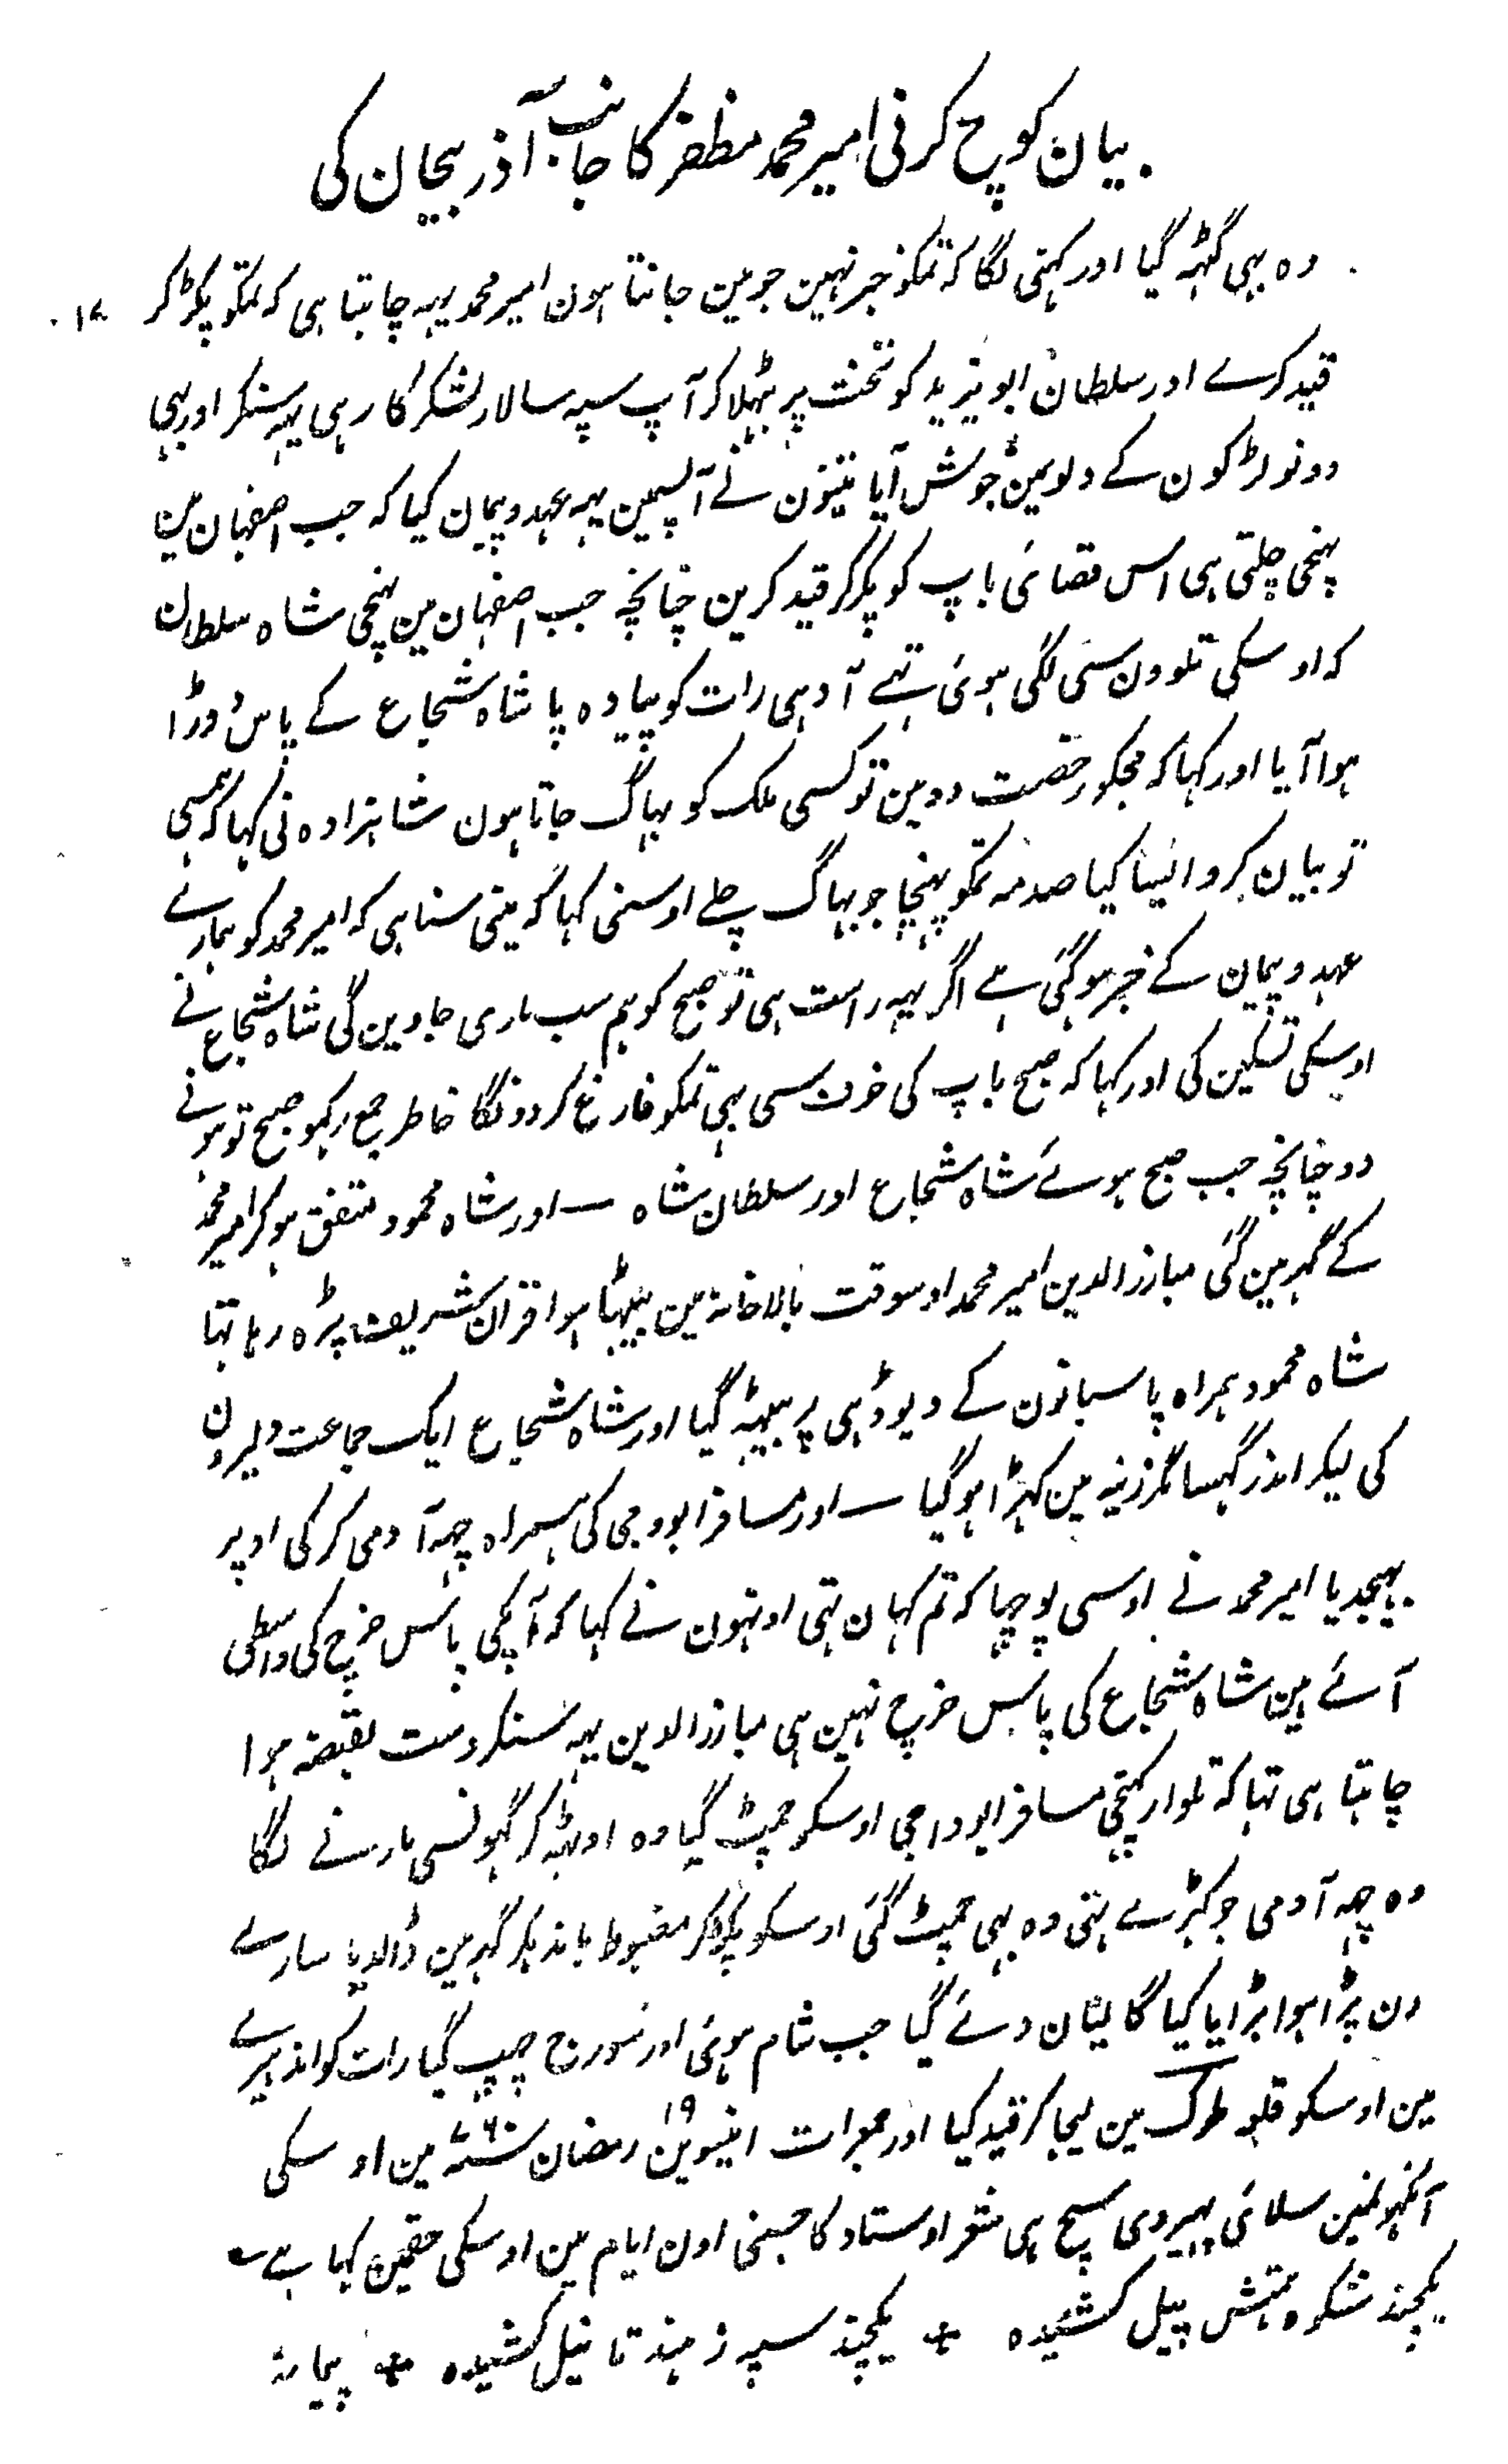 بیان کوچ کرنی امیر محمد مظفر کا جانب آذربیجان کی
وہ بہی گہٹہ گیا اور کہنی لگا کہ تمکو خبر نہین جو مین جانتا ہون امیر محمد یہہ چاہتا ہی کہ تمکو پکڑ کر
قید کرے اور سلطان ابو یزید کو تخت پر بٹہلا کر آپ سپہ سالار لشکر کا رہی یہہ سنکر اور بہی
دونو لڑکون کے دلومین جوش آیا تینون نے آپسمین یہہ عہد و پیمان کیا کہ جب اصفہان مین
پہنچی چلتی ہی اس قصائی باپ کو پکر کر قید کرین چنانچہ جب اصفہان مین پہنچی شاہ سلطان
کہ اوسکی تلوون سی لگی ہوئی تہے آدہی رات کو پیادہ پا شاہ شجاع کے پاس دوڑا
ہوا آیا اور کہا کہ مجکو رخصت دو مین تو کسی ملک کو بہاگ جاتا ہون شاہزادہ نی کہا کہ ہمسی
تو بیان کرو ایسا کیا صدمہ تمکو پہنچا جو بہاگ چلے اوسنی کہا کہ مینی سنا ہی کہ امیر محمد کو ہمارے
عہد و پیمان کے خبر ہوگئی ہے اگر یہہ راست ہی تو صبح کو ہم سب ماری جاوین گی شاہ شجاع نے
اوسکی تسکین کی اور کہا کہ صبح باپ کی خوف سی بہی تمکو فارغ کر دونگا خاطر جمع رکہو صبح تو ہونے
دو چنانچہ جب صبح ہوئے شاہ شجاع اور سلطان شاہ اور شاہ محمود متفق ہو کر امیر محمد
کے گہر مین گئی مبارز الدین امیر محمد اوسوقت بالاخانہ مین بیٹہا ہوا قران شریف پڑہ رہا تہا
شاہ محمود ہمراہ پاسبانون کے دیوڈہی پر بیٹہہ گیا اور شاہ شجاع ایک جماعت دلیرون
کی لیکر اندر گہسا مگر زینہ مین کہڑا ہو گیا اور مسافر ابو دجی کی ہمراہ چہہ آدمی کر کی اوپر
بہیجدیا امیر محمد نے اوسی پوچہا کہ تم کہان تہی اونہون نے کہا کہ آپکی پاس خرچ کی واسطی
آئے ہین شاہ شجاع کی پاس خرچ نہین ہی مبارز الدین یہہ سنکر دست بقبضہ ہوا
چاہتا ہی تہا کہ تلوار کہنچی مسافر ابو داجی اوسکو چمپٹ گیا وہ اوٹہہ کر گہونسی مارنے لگا
وہ چہہ آدمی جو کہڑے تہی وہ بہی چمپٹ گئی اوسکو پکڑ کر مضبوط باندہکر گہر مین ڈالدیا سارے
دن پڑا ہوا بڑایا کیا گالیان دئے گیا جب شام ہوئی اور سورج چہپ گیا رات کو اندہیرے
مین اوسکو قلعہ طرک مین لیجا کر قید کیا اور جمعرات انیسوین ۱۹ رمضان سنہ ۷۶۰ مین اوسکی
آنکہونمین سلائی پہیر دی سچ ہی شعر اوستاد کا جسنی اون ایام مین اوسکی حقمین کہا ہے
یکچند شکوہ ہمتش پیل کشیدہ + یکچند سپہ ز ہند تا نیل کشیدہ + پیمانہ